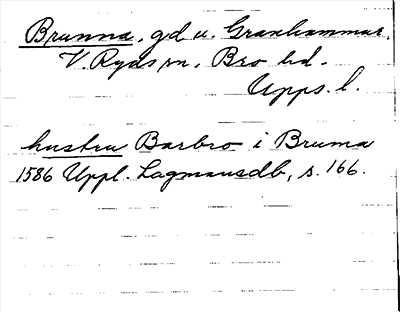 Brunna, gd u. Granhammar,
V. Ryds sn, Bro hd.
Upps. l.
hustru Barbro i Bruma
1586 Uppl. Lagmansdb, s. 166.